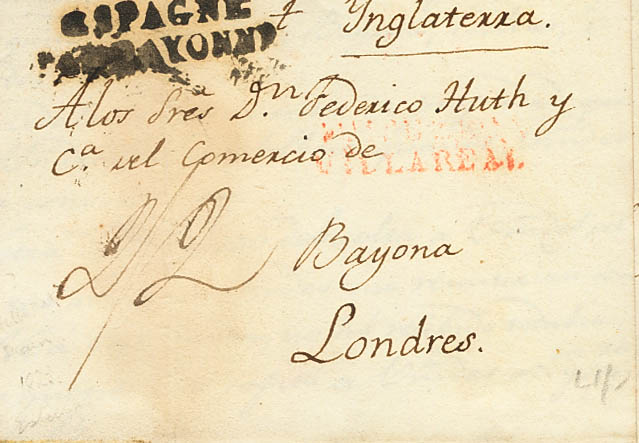 ESPAGNE
PAR BAYONNE
Ynglaterra.
A los Sres Dn. Federico Huth y
Ca. del Comercio de
VILLAREAL
Bayona
Londres.